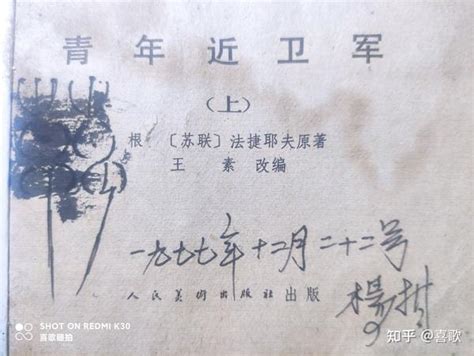 青年近卫军
（上）
根〔苏联〕法捷耶夫原著
王素 改编
一九七七年十二月二十二号
人民美术出版社出版
楊樹
SHOT ON REDMI K30
喜歌随拍
知乎 @喜歌